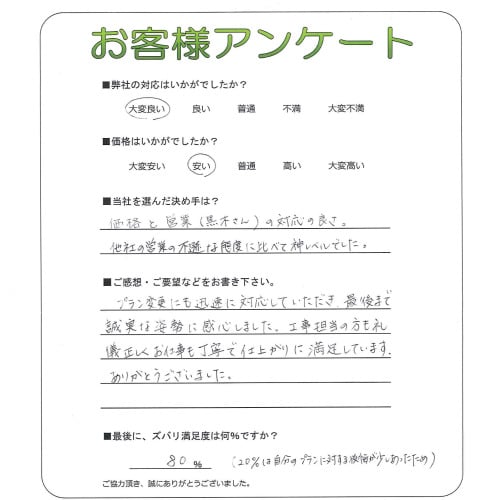 お客様アンケート
■弊社の対応はいかがでしたか？
大変良い 良い 普通 不満 大変不満
■価格はいかがでしたか？
大変安い 安い 普通 高い 大変高い
■当社を選んだ決め手は？
価格と営業（黒木さん）の対応の良さ。
他社の営業の不遜な態度に比べて神レベルでした。
■ご感想・ご要望などをお書き下さい。
プラン変更にも迅速に対応していただき、最後まで
誠実な姿勢に感心しました。工事担当の方も礼
儀正しくお仕事も丁寧で仕上がりに満足しています。
ありがとうございました。
■最後に、ズバリ満足度は何%ですか？
80 % （20%は自分のプランに対する評価が少しあったため）
ご協力頂き、誠にありがとうございました。